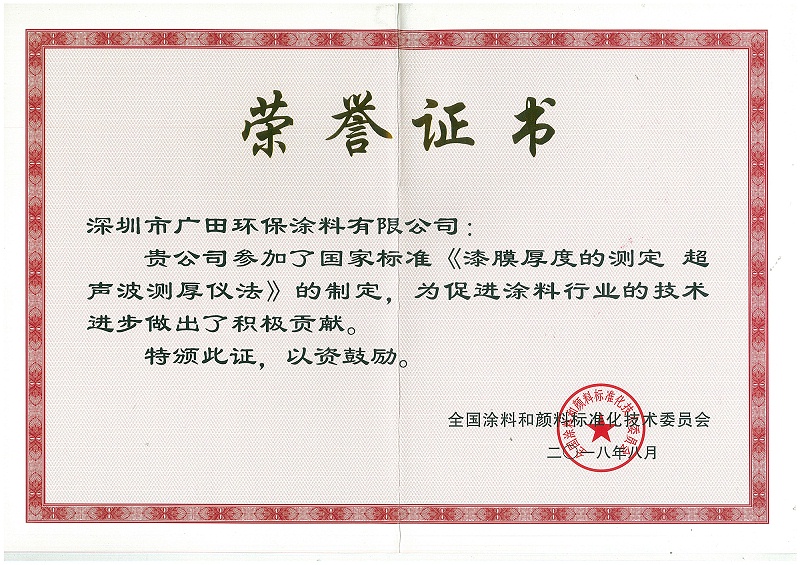 荣誉证书
深圳市广田环保涂料有限公司：
贵公司参加了国家标准《漆膜厚度的测定 超
声波测厚仪法》的制定，为促进涂料行业的技术
进步做出了积极贡献。
特颁此证，以资鼓励。
全国涂料和颜料标准化技术委员会
二〇一八年八月
全国涂料和颜料标准化技术委员会